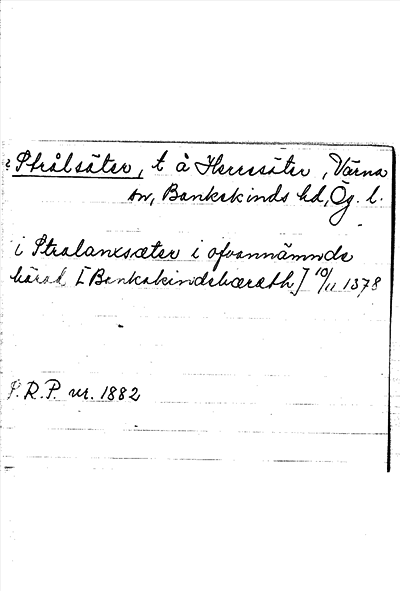 Strålsäter, t å Herrsäter, Värna
sn, Bankekinds hd, Ög. l.
i Stralanxsæter i ofvannämnde
härad [Bankakindshæradh] 10/11 1378
S.R.P. nr. 1882